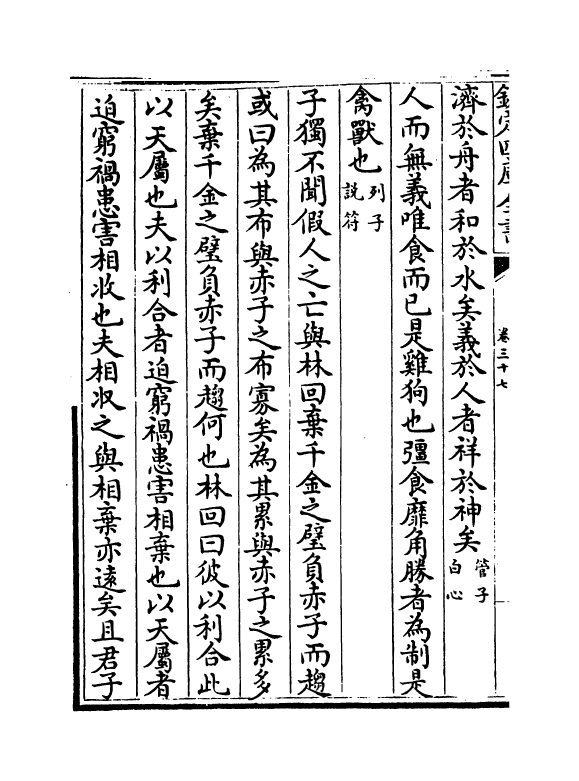 欽定四庫全書
卷三十七
濟於舟者和於水矣義於人者祥於神矣管子白心
人而無義唯食而已是雞狗也彊食靡角勝者為制是
禽獸也列子說符
子獨不聞假人之亡與林回棄千金之璧負赤子而趨
或曰為其布與赤子之布寡矣為其累與赤子之累多
矣棄千金之璧負赤子而趨何也林回曰彼以利合此
以天屬也夫以利合者迫窮禍患害相棄也以天屬者
迫窮禍患害相收也夫相收之與相棄亦遠矣且君子